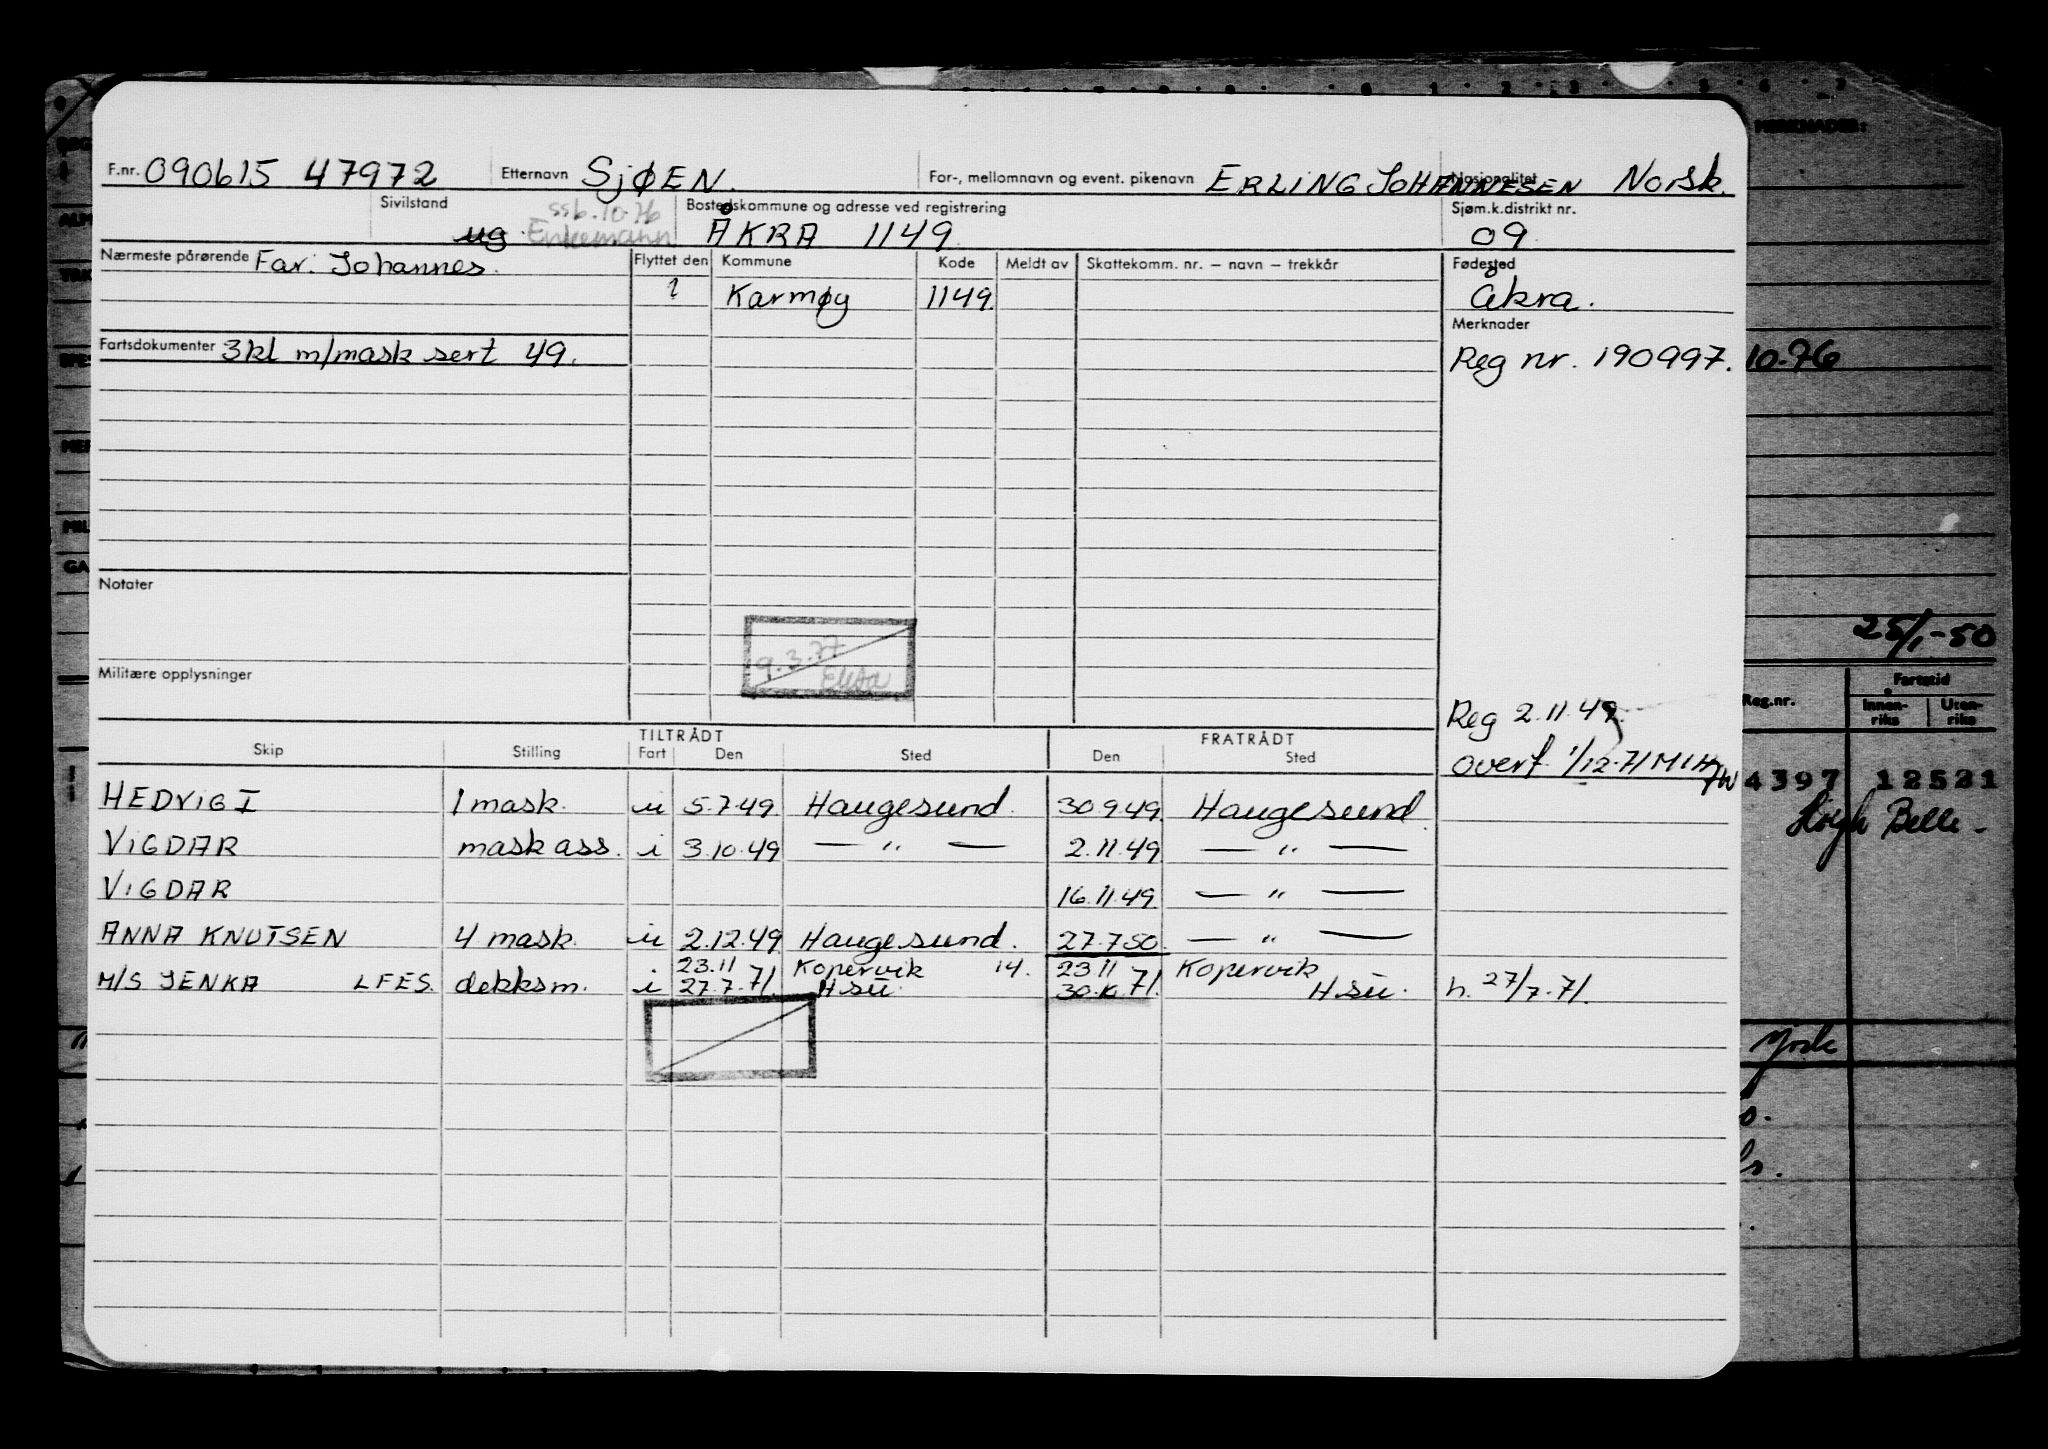 MERKNADER:
F.nr. 090615 47972 Etternavn SjØEN. For-, mellomnavn og event. pikenavn ERLING JOHANNESEN Nasjonalitet Norsk.
Sivilstand ug. ssb. 10-76 Enkemann Bostedskommune og adresse ved registrering ÅKRA 1149 Sjøm.k.distrikt nr. 09
Nærmeste pårørende Far: Johannes. Flyttet den Kommune Kode Meldt av Skattekomm. nr. – navn – trekkår Fødested
? Karmøy 1149 Åkra.
Merknader
Fartsdokumenter 3kl m/mask sert 49. Reg nr. 190997. 10-76
Notater
25/1-50
9.3.77
Militære opplysninger
Reg.nr. Fartstid
Innen-riks Uten-riks
Reg 2.11.49
TILTRÅDT FRATRÅDT
Skip Stilling Fart Den Sted Den Sted
overf. 1/12-71 MIH
4397 12521
HEDVIG I 1 mask. u 5.7.49 Haugesund. 30.9.49 Haugesund.
Høegh Belle -
VIGDAR mask ass. i 3.10.49 — " — 2.11.49 — " —
VIGDAR 16.11.49 — " —
ANNA KNUTSEN 4 mask. u 2.12.49 Haugesund. 27.7.50. — " —
23.11 Kopervik 14. 23.11 Kopervik
M/S JENKA LFES dekksm. i 27.7.71. H.su. 30.10.71. H.su. h. 27/7.71.